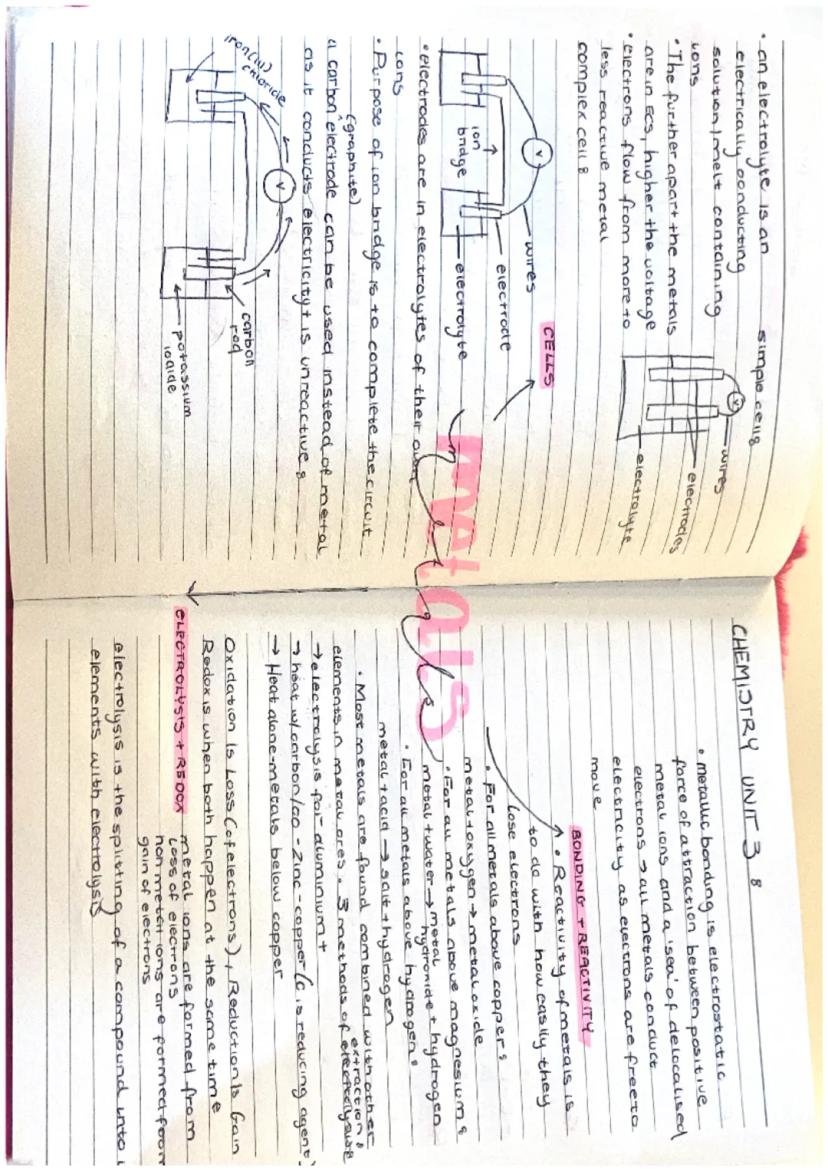 CHEMISTRY UNIT 3 :
metals
• metallic bonding is electrostatic
force of attraction between positive
metal ions and a 'sea' of delocalised
electrons → all metals conduct
electricity as electrons are free to
move
BONDING + REACTIVITY
• Reactivity of metals is
to do with how easily they
lose electrons
• For all metals above copper:
metal + oxygen → metal oxide
• For all metals above magnesium:
metal + water → metal hydroxide + hydrogen
• For all metals above hydrogen:
metal + acid → salt + hydrogen
• Most metals are found combined with other
elements in metal ores. 3 methods of extraction:
→ electrolysis for - aluminium +
→ heat w/ carbon/co - zinc - copper (c is reducing agent)
→ Heat alone - metals below copper
Oxidation Is Loss (of electrons), Reduction Is Gain
Redox is when both happen at the same time
ELECTROLYSIS + REDOX
metal ions are formed from
loss of electrons
non metal ions are formed from
gain of electrons
electrolysis is the splitting of a compound into
elements with electrolysis
• an electrolyte is an
electrically conducting
solution/melt containing
ions
• The further apart the metals
are in ECS, higher the voltage
• electrons flow from more to
less reactive metal
simple cell:
V
wires
electrodes
electrolyte
complex cell:
V
wires
electrode
electrolyte
ion
bridge
CELLS
• electrodes are in electrolytes of their own
ions
• Purpose of ion bridge is to complete the circuit
(graphite)
a carbon electrode can be used instead of metal
as it conducts electricity + is unreactive:
iron (III)
chloride
V
carbon
rod
potassium
iodide